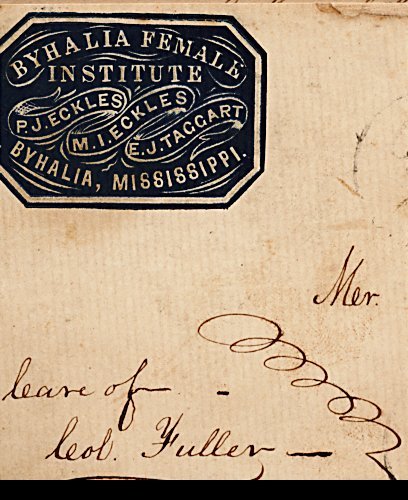 BYHALIA FEMALE
INSTITUTE
P.J. ECKLES
M.I. ECKLES
E.J. TAGGART
BYHALIA, MISSISSIPPI.
Mer.
Care of -
Col. Fuller —